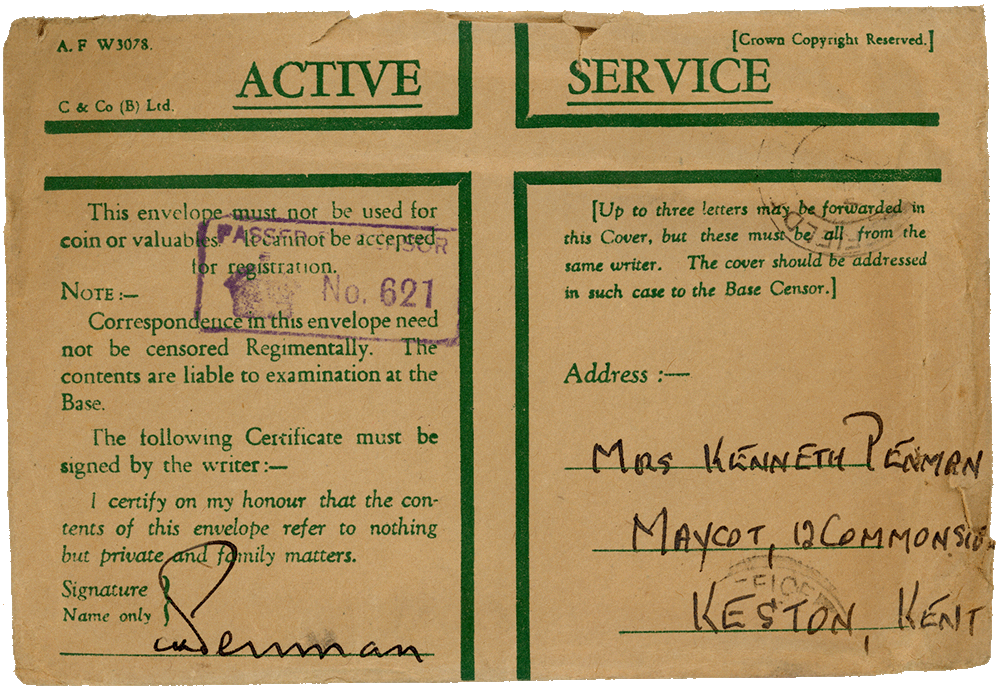 A. F W3078.
[Crown Copyright Reserved.]
ACTIVE SERVICE
C & Co (B) Ltd.
This envelope must not be used for
coin or valuables. It cannot be accepted
for registration.
PASSED
No. 621
NOTE:—
Correspondence in this envelope need
not be censored Regimentally. The
contents are liable to examination at the
Base.
The following Certificate must be
signed by the writer:—
I certify on my honour that the con-
tents of this envelope refer to nothing
but private and family matters.
Signature
Name only
Penman
[Up to three letters may be forwarded in
this Cover, but these must be all from the
same writer. The cover should be addressed
in such case to the Base Censor.]
Address :—
MRS KENNETH PENMAN
MAYCOT, 12 COMMONSIDE
KESTON, KENT